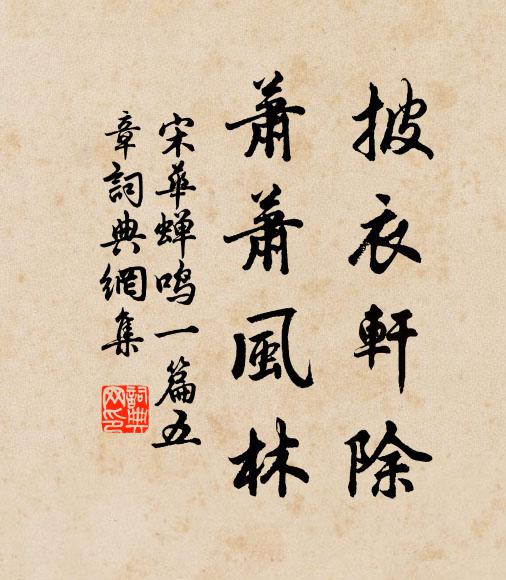 披衣軒除
蕭蕭風林
宋華蟬鳴一篇五
章詞典網集
詞典
网印